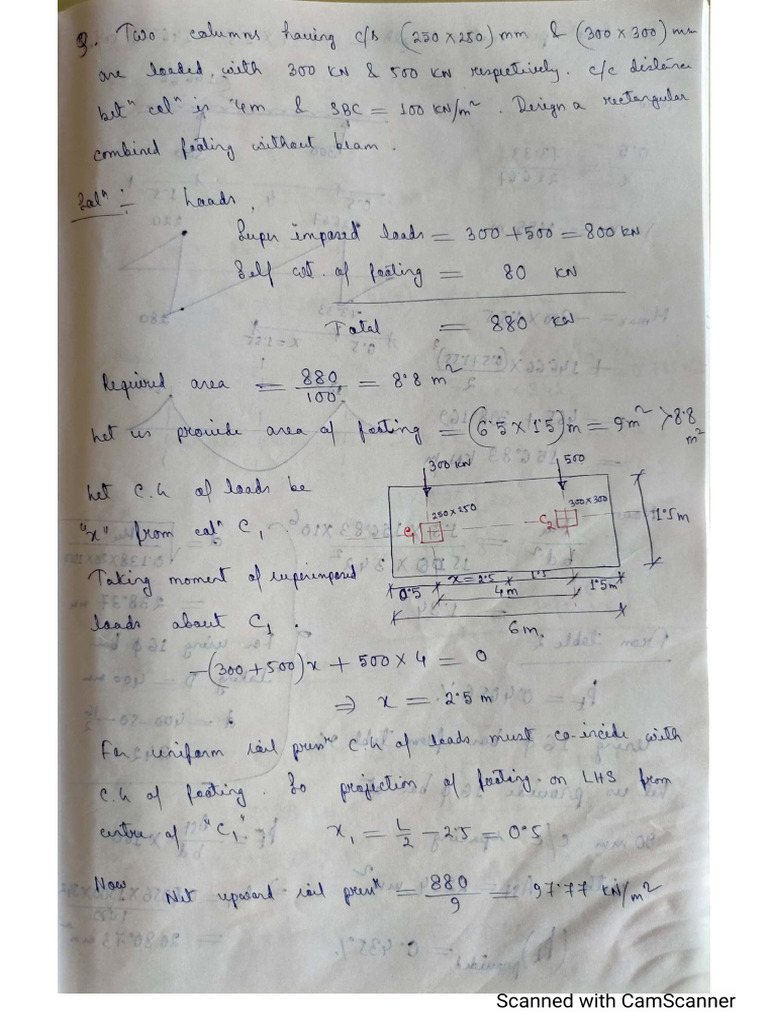 Q. Two columns having c/s (250 x 250) mm & (300 x 300) mm
are loaded with 300 KN & 500 KN respectively. c/c distance
betⁿ colⁿ is 4m & SBC = 100 KN/m². Design a rectangular
combined footing without beam.
Solⁿ :- Loads,
Super imposed loads = 300 + 500 = 800 KN
Self wt. of footing = 80 KN
Total = 880 KN
Required area = 880/100 = 8.8 m²
Let us provide area of footing = (6.5 x 1.5) m = 9m² > 8.8 m²
Let C.G of loads be
"x" from colⁿ C₁.
Taking moment of superimposed
loads about C₁.
300 KN
500
250 x 250
300 x 300
C₁
C₂
1.5 m
0.5
x = 2.5
1.5
4 m
1.5m
6 m.
-(300 + 500)x + 500 x 4 = 0
⇒ x = 2.5 m
For uniform soil presʳ C.G of loads must co-incide with
C.G of footing. So projection of footing on LHS from
centre of "C₁" x₁ = L/2 - 2.5 = 0.5
Now Net upward soil presʳ = 880/9 = 97.77 KN/m²
Scanned with CamScanner